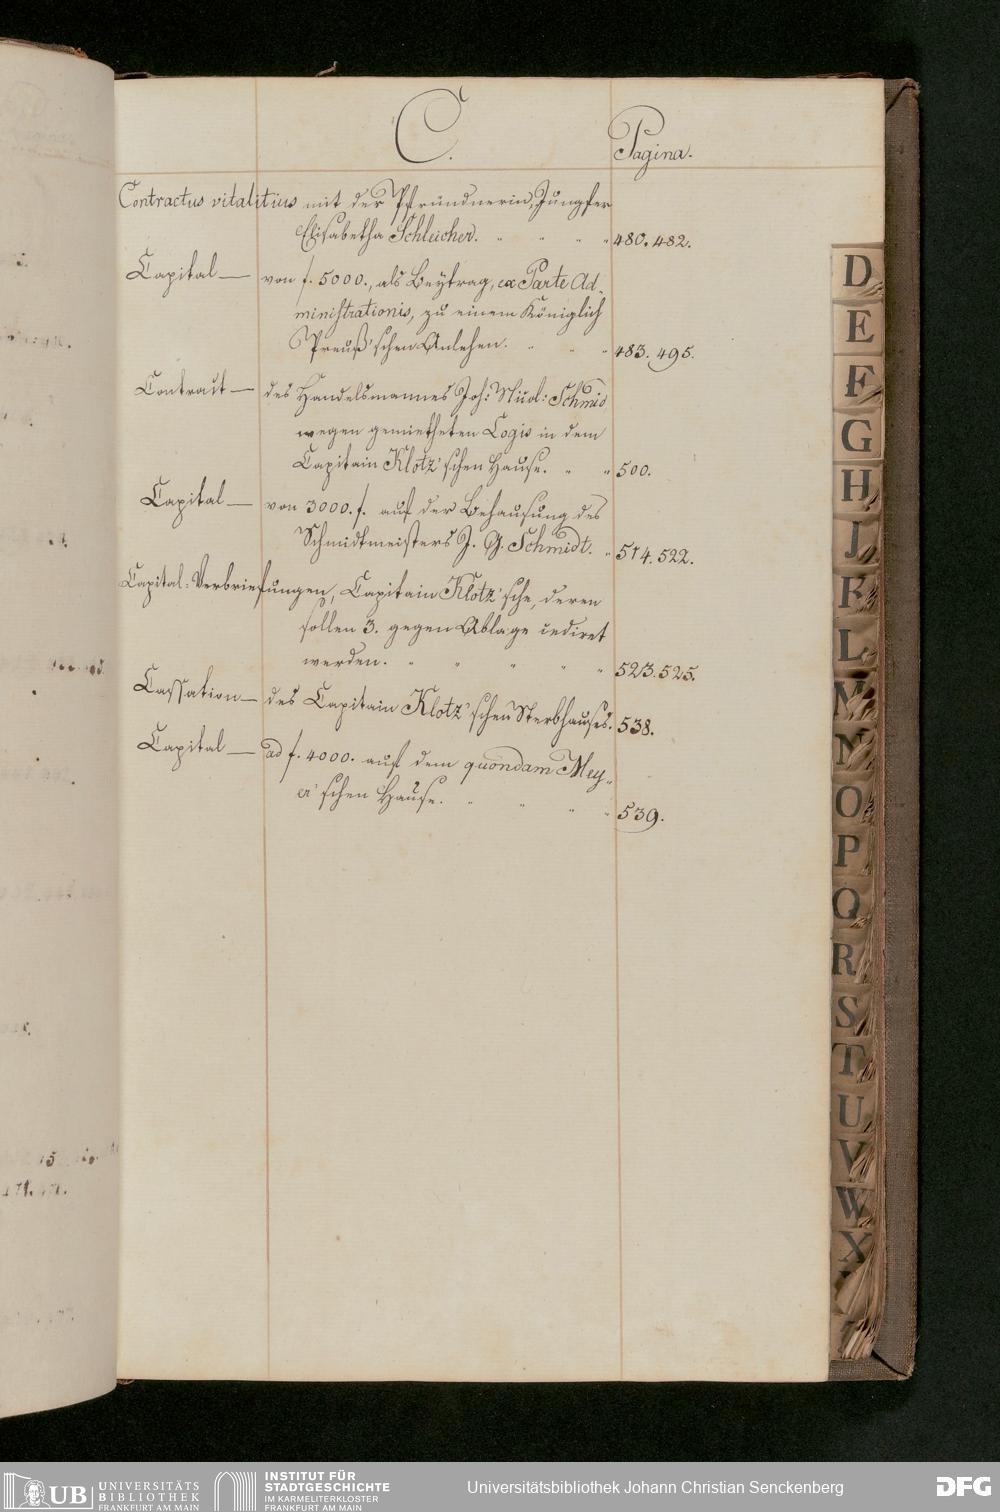 C.
Pagina.
Contractus vitalitius mit der Pfründnerin, Jungfer
Elisabetha Schleicher. 480. 482.
Capital — von f. 5000., als Beytrag, ex Parte Ad-
ministrationis, zu einem Königlich
Preuß'schen Anlehen. 483. 495.
Contract — des Handelsmannes Joh: Schmid
wegen gemietheten Logis in dem
Capitain Klotz'schen Hause. 500.
Capital — von 3000. f. auf der Behausung des
Schmidtmeisters J. G. Schmidt. 514. 522.
Capital-Verbriefungen, Capitain Klotz'sche, deren
sollen 3. gegen Ablage cediret
werden. 523. 525.
Cassation — des Capitain Klotz'schen Sterbhauses. 538.
Capital — ad f. 4000. auf dem quondam Mey-
er'schen Hause. 539.
D
E
F
G
H
J
K
L
M
N
O
P
Q
R
S
T
U
V
W
X
UB UNIVERSITÄTS
BIBLIOTHEK
FRANKFURT AM MAIN
INSTITUT FÜR
STADTGESCHICHTE
IM KARMELITERKLOSTER
FRANKFURT AM MAIN
Universitätsbibliothek Johann Christian Senckenberg
DFG